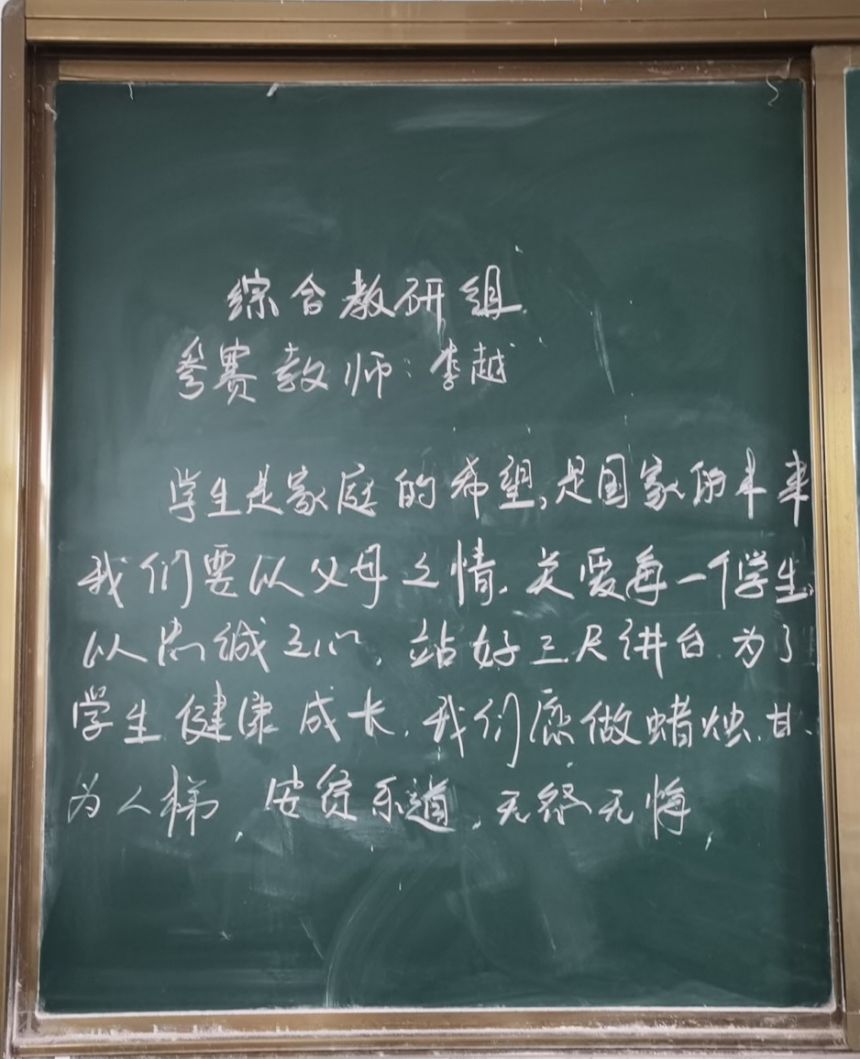 综合教研组
参赛教师:李越
学生是家庭的希望,是国家的未来
我们要以父母之情,关爱每一个学生,
以忠诚之心,站好三尺讲台.为了
学生健康成长,我们愿做蜡烛,甘
为人梯,安贫乐道,无怨无悔,